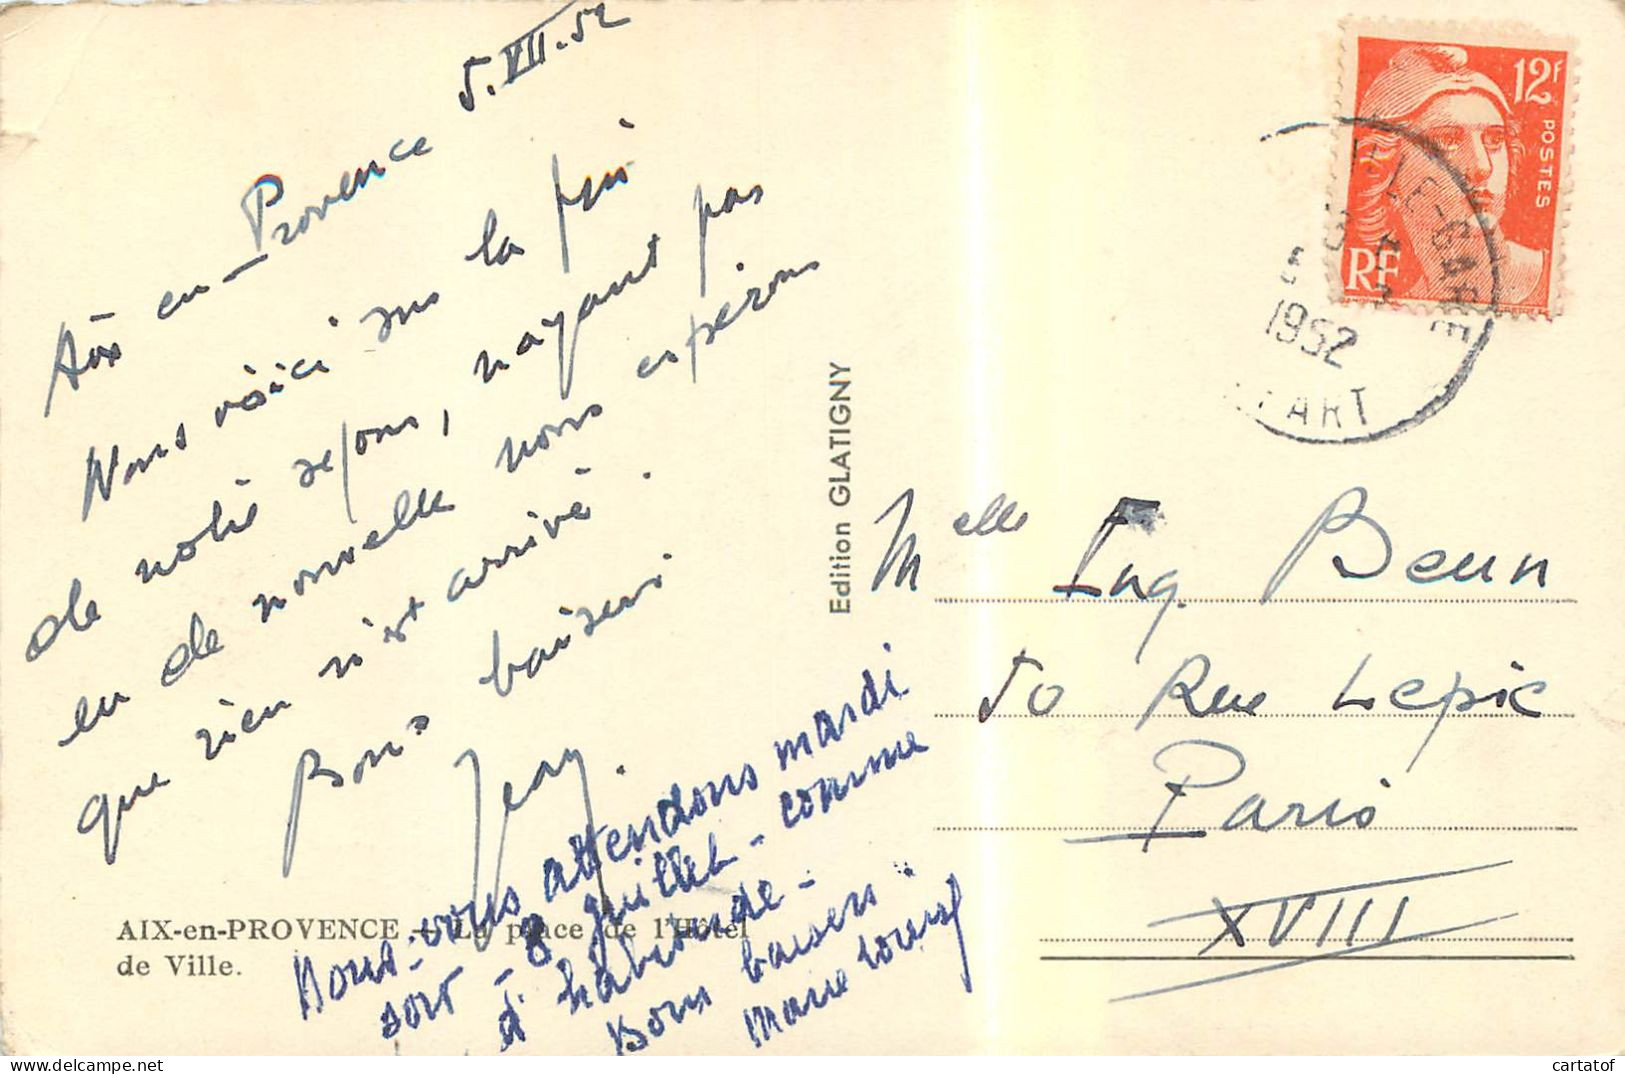 Aix-en-Provence 5.VII.52
Nous voici sur la fin
de notre séjour, n'ayant pas
eu de nouvelle nous espérons
que rien n'est arrivé.
Bons baisers.
Jean.
Nous vous attendons mardi
soir - 8 juillet - comme
d'habitude -
Bons baisers.
Marie Louise
AIX-en-PROVENCE — La place de l'Hôtel
de Ville.
Edition GLATIGNY
12F
POSTES
RF
LE-GARE
5
1952
ART
Melle Eug. Beun
50 Rue Lepic
Paris
XVIII
cartatof